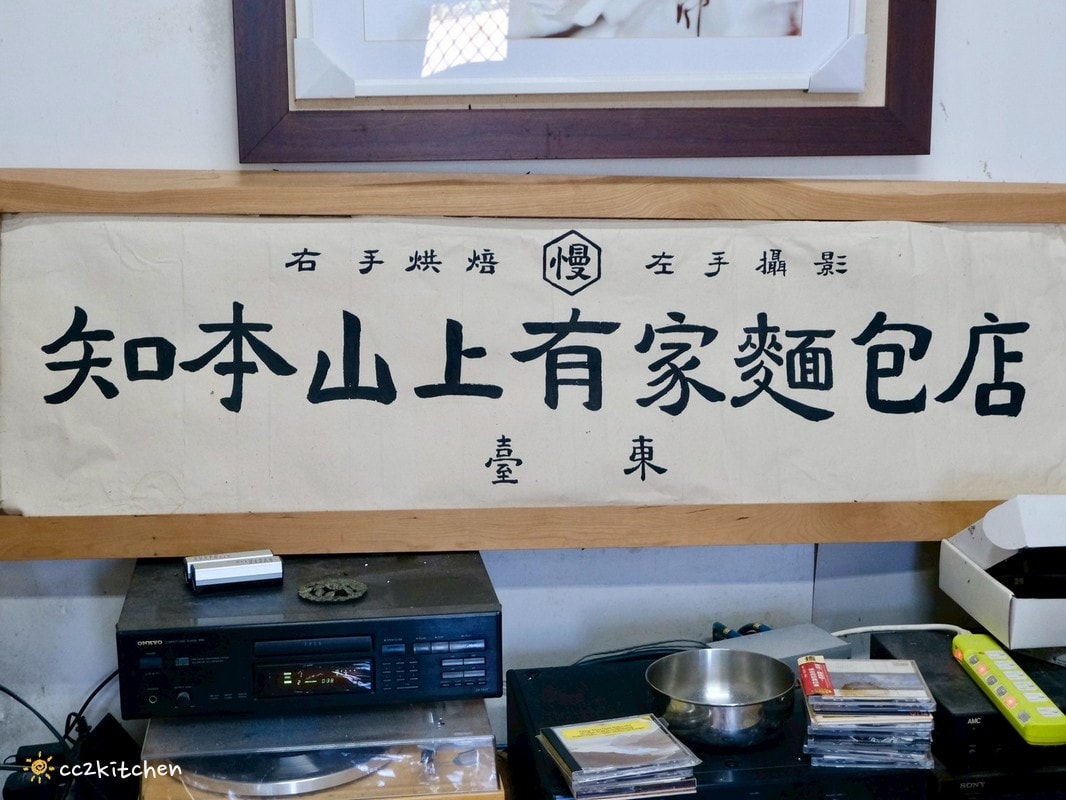 右手烘焙 慢 左手攝影
知本山上有家麵包店
臺東
ONKYO
AMC
SONY
cc2kitchen